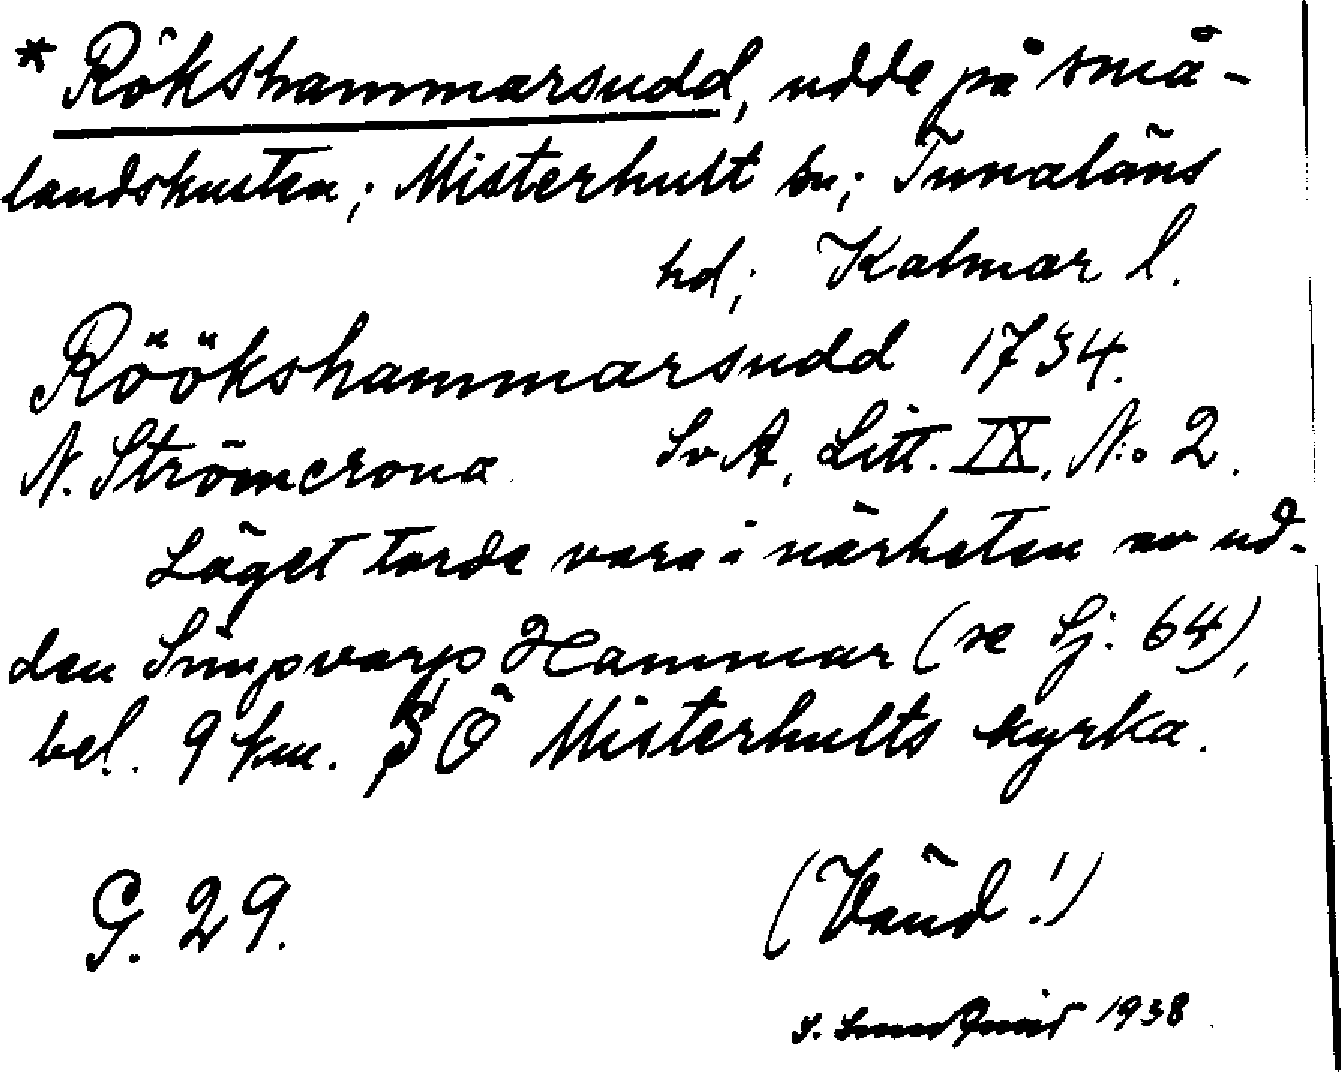 * Rökshammarsudd, udde på små-
landskusten; Misterhult sn; Tunaläns
hd; Kalmar l.
Röökshammarsudd 1734.
N. Strömcrona SvA, Litt. IX, No 2.
Läget torde vara i närheten av ud-
den Simpvarps Hammar (se Sj. 64),
bel. 9 km. S Ö Misterhults kyrka.
G. 29. (Vänd!)
1938